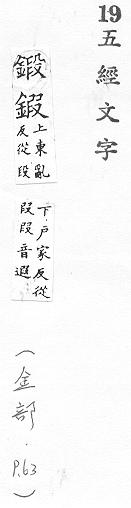 19五經文字
鍛鍜
上東亂
反從段
下戶家反從
叚叚音遐
(金部.P.63)